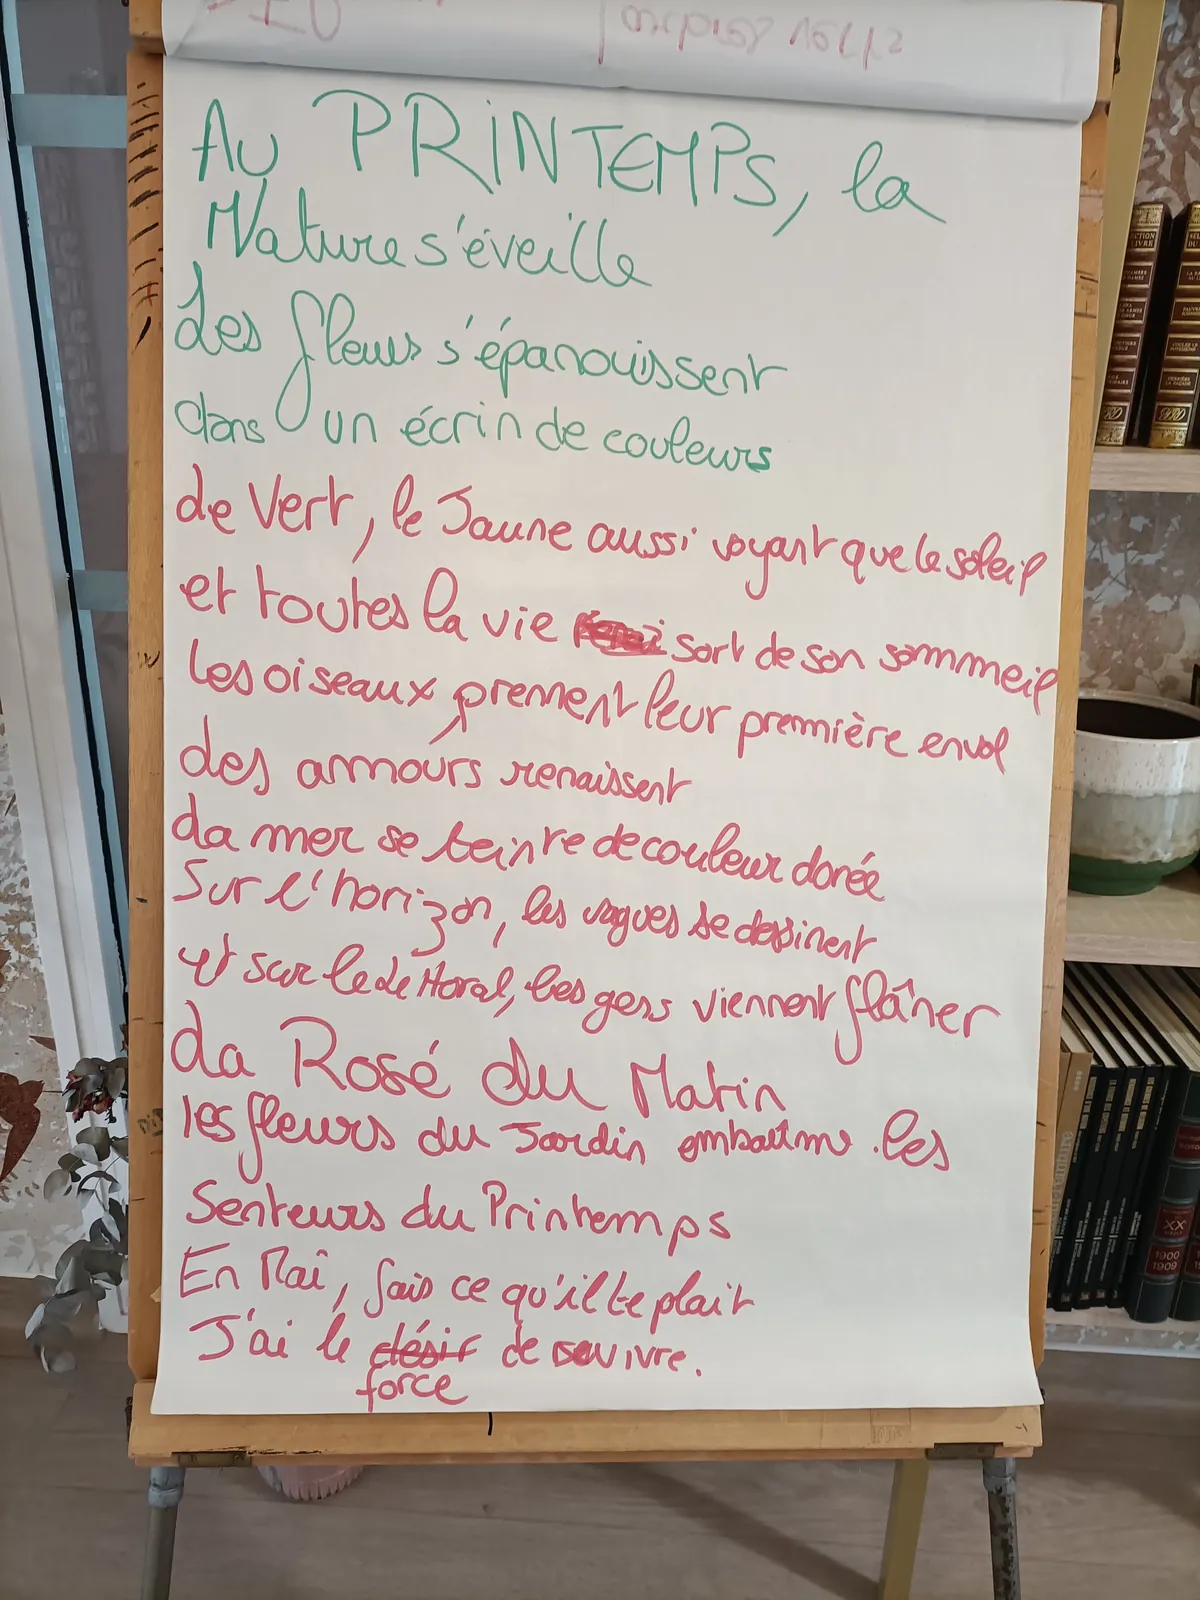 Au PRINTEMPS, la
Nature s'éveille
Les fleurs s'épanouissent
dans un écrin de couleurs
de Vert, le Jaune aussi voyant que le soleil
et toutes la vie sort de son sommeil
les oiseaux prennent leur première envol
des amours renaissent
La mer se teintre de couleur dorée
Sur l'horizon, les vagues se dessinent
et sur le Littoral, les gens viennent flâner
La Rosé du Matin
les fleurs du Jardin embaûme les
Senteurs du Printemps
En Maî, fais ce qu'il te plait
J'ai le désir de vivre.
force
XX
1900
1909